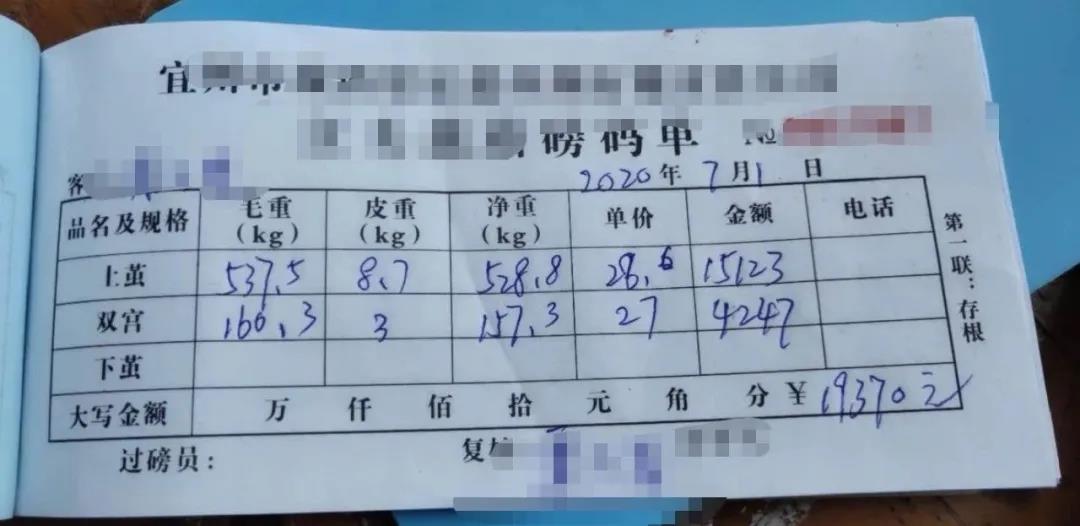 宜
磅码单 №
客
2020年 7月1日
品名及规格 毛重(kg) 皮重(kg) 净重(kg) 单价 金额 电话
上茧 537.5 8.7 528.8 28.6 15123
双宫 160.3 3 157.3 27 4247
下茧
大写金额 万 仟 佰 拾 元 角 分 ¥19370元
过磅员： 复
第一联：存根